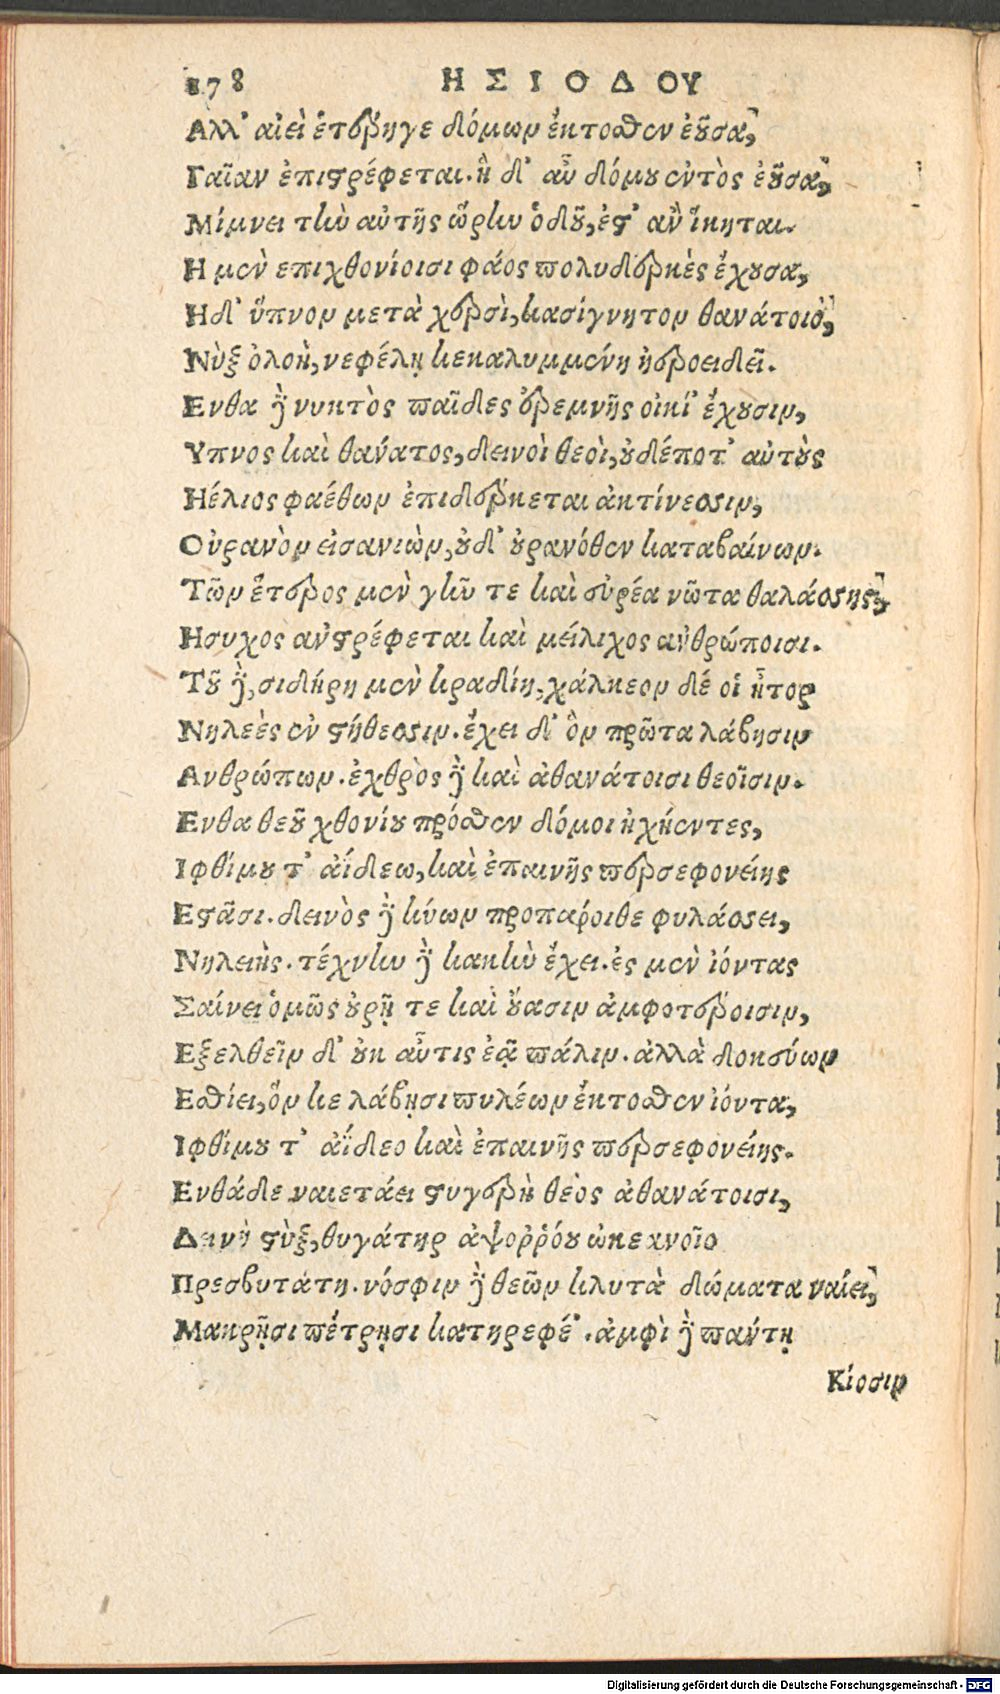 178 ΗΣΙΟΔΟΥ
Αλλ' αἰεὶ ἑτέρηγε δόμων ἔκτοσθεν ἐοῦσα,
Γαῖαν ἐπιστρέφεται. ἣ δ' αὖ δόμου ἐντὸς ἐοῦσα,
Μίμνει τὴν αὐτῆς ὥρην ὁδοῦ, ἔστ' ἂν ἵκηται.
Η μὲν ἐπιχθονίοισι φάος πολυδερκὲς ἔχουσα,
Ηδ' ὕπνον μετὰ χερσὶ, κασίγνητον θανάτοιο,
Νὺξ ὀλοὴ, νεφέλῃ κεκαλυμμένη ἠεροειδεῖ.
Ενθα δὲ νυκτὸς παῖδες ἐρεμνῆς οἰκί' ἔχουσιν,
Υπνος καὶ θάνατος, δεινοὶ θεοὶ, οὐδέποτ' αὐτοὺς
Ηέλιος φαέθων ἐπιδέρκεται ἀκτίνεσσιν,
Οὐρανὸν εἰσανιὼν, οὐδ' οὐρανόθεν καταβαίνων.
Τῶν ἕτερος μὲν γῆν τε καὶ εὐρέα νῶτα θαλάσσης,
Ησυχος ἀνστρέφεται καὶ μείλιχος ἀνθρώποισι.
Τοῦ δὲ, σιδήρη μὲν κραδίη, χάλκεον δέ οἱ ἦτορ
Νηλεὲς ἐν στήθεσσιν. ἔχει δ' ὃν πρῶτα λάβησιν
Ανθρώπων. ἐχθρὸς δὲ καὶ ἀθανάτοισι θεοῖσιν.
Ενθα θεοῦ χθονίου πρόσθεν δόμοι ἠχήεντες,
Ιφθίμου τ' ἀΐδεω, καὶ ἐπαινῆς περσεφονείης
Εστᾶσι. δεινὸς δὲ κύων προπάροιθε φυλάσσει,
Νηλειής. τέχνην δὲ κακὴν ἔχει. ἐς μὲν ἰόντας
Σαίνει ὁμῶς οὐρῇ τε καὶ οὔασιν ἀμφοτέροισιν,
Εξελθεῖν δ' οὐκ αὖτις ἐᾷ πάλιν. ἀλλὰ δοκεύων
Εσθίει, ὅν κε λάβῃσι πυλέων ἔκτοσθεν ἰόντα,
Ιφθίμου τ' ἀΐδεο καὶ ἐπαινῆς περσεφονείης.
Ενθάδε ναιετάει στυγερὴ θεὸς ἀθανάτοισι,
Δεινὴ στὺξ, θυγάτηρ ἀψοῤῥόου ὠκεανοῖο
Πρεσβυτάτη. νόσφιν δὲ θεῶν κλυτὰ δώματα ναίει,
Μακρῇσι πέτρῃσι κατηρεφέ'. ἀμφὶ δὲ πάντῃ
Κίοσιν
Digitalisierung gefördert durch die Deutsche Forschungsgemeinschaft - DFG